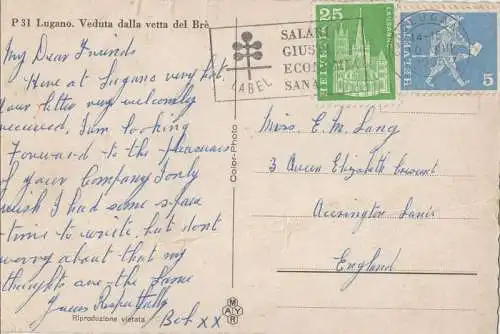 P 31 Lugano. Veduta dalla vetta del Brè
My Dear Friends
Here at Lugano very hot,
your letter very welcomly
received, I am looking
Forward to the pleasures
of your Company I only
wish I had some spare
time to write, but dont
worry about that my
thoughts are the same
Yours Respectfully
Bob xx
Riproduzione vietata
Color-Photo
MAYR
LABEL
SALAR
GIUS
ECON
SANA
25
HELVETIA
LAUSANNE
LUGANO
HELVETIA
5
Miss. E. M. Lang
3 Queen Elizabeth Crescent
Accrington Lancs
England